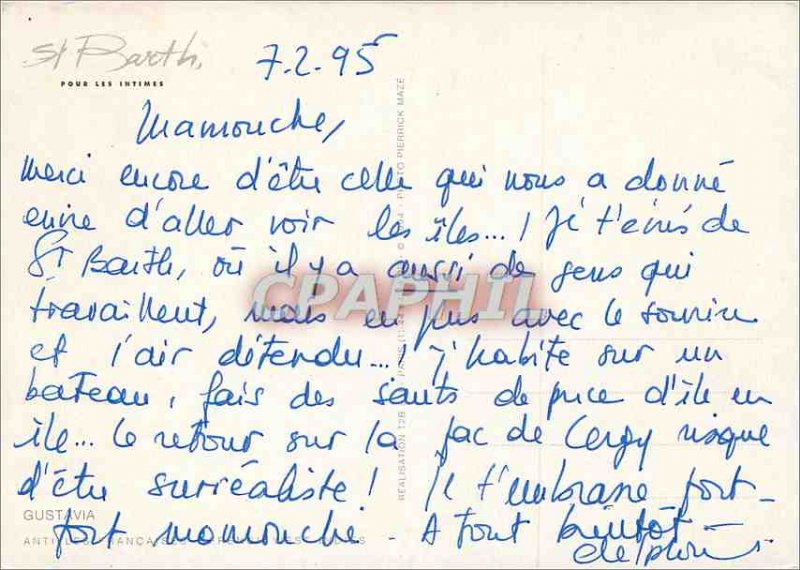 St Barth,
POUR LES INTIMES
7.2.95
Mamouche,
merci encore d'être celle qui nous a donné
envie d'aller voir les îles...! Je t'écris de
St Barth, où il y a aussi de gens qui
travaillent, mais en plus avec le sourire
et l'air détendu... J'habite sur un
bateau, fais des sauts de puce d'île en
île... Le retour sur la fac de Cergy risque
d'être surréaliste! Je t'embrasse fort-
fort mamouche. A tout bientôt -
delphine
GUSTAVIA
PHOTO PIERRICK MAZE
CPAPHIL